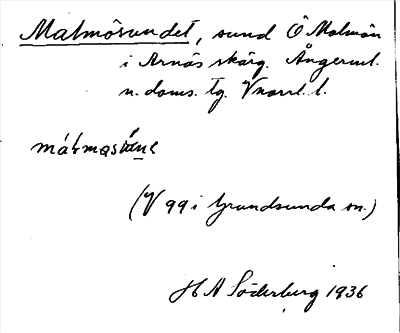 Malmösundet, sund Ö Malmön
i Arnäs skärg. Ångerml.
n. doms. tg. Vnorrl. l.
(V 99 i Grundsunda sn.)
H A Söderberg 1936